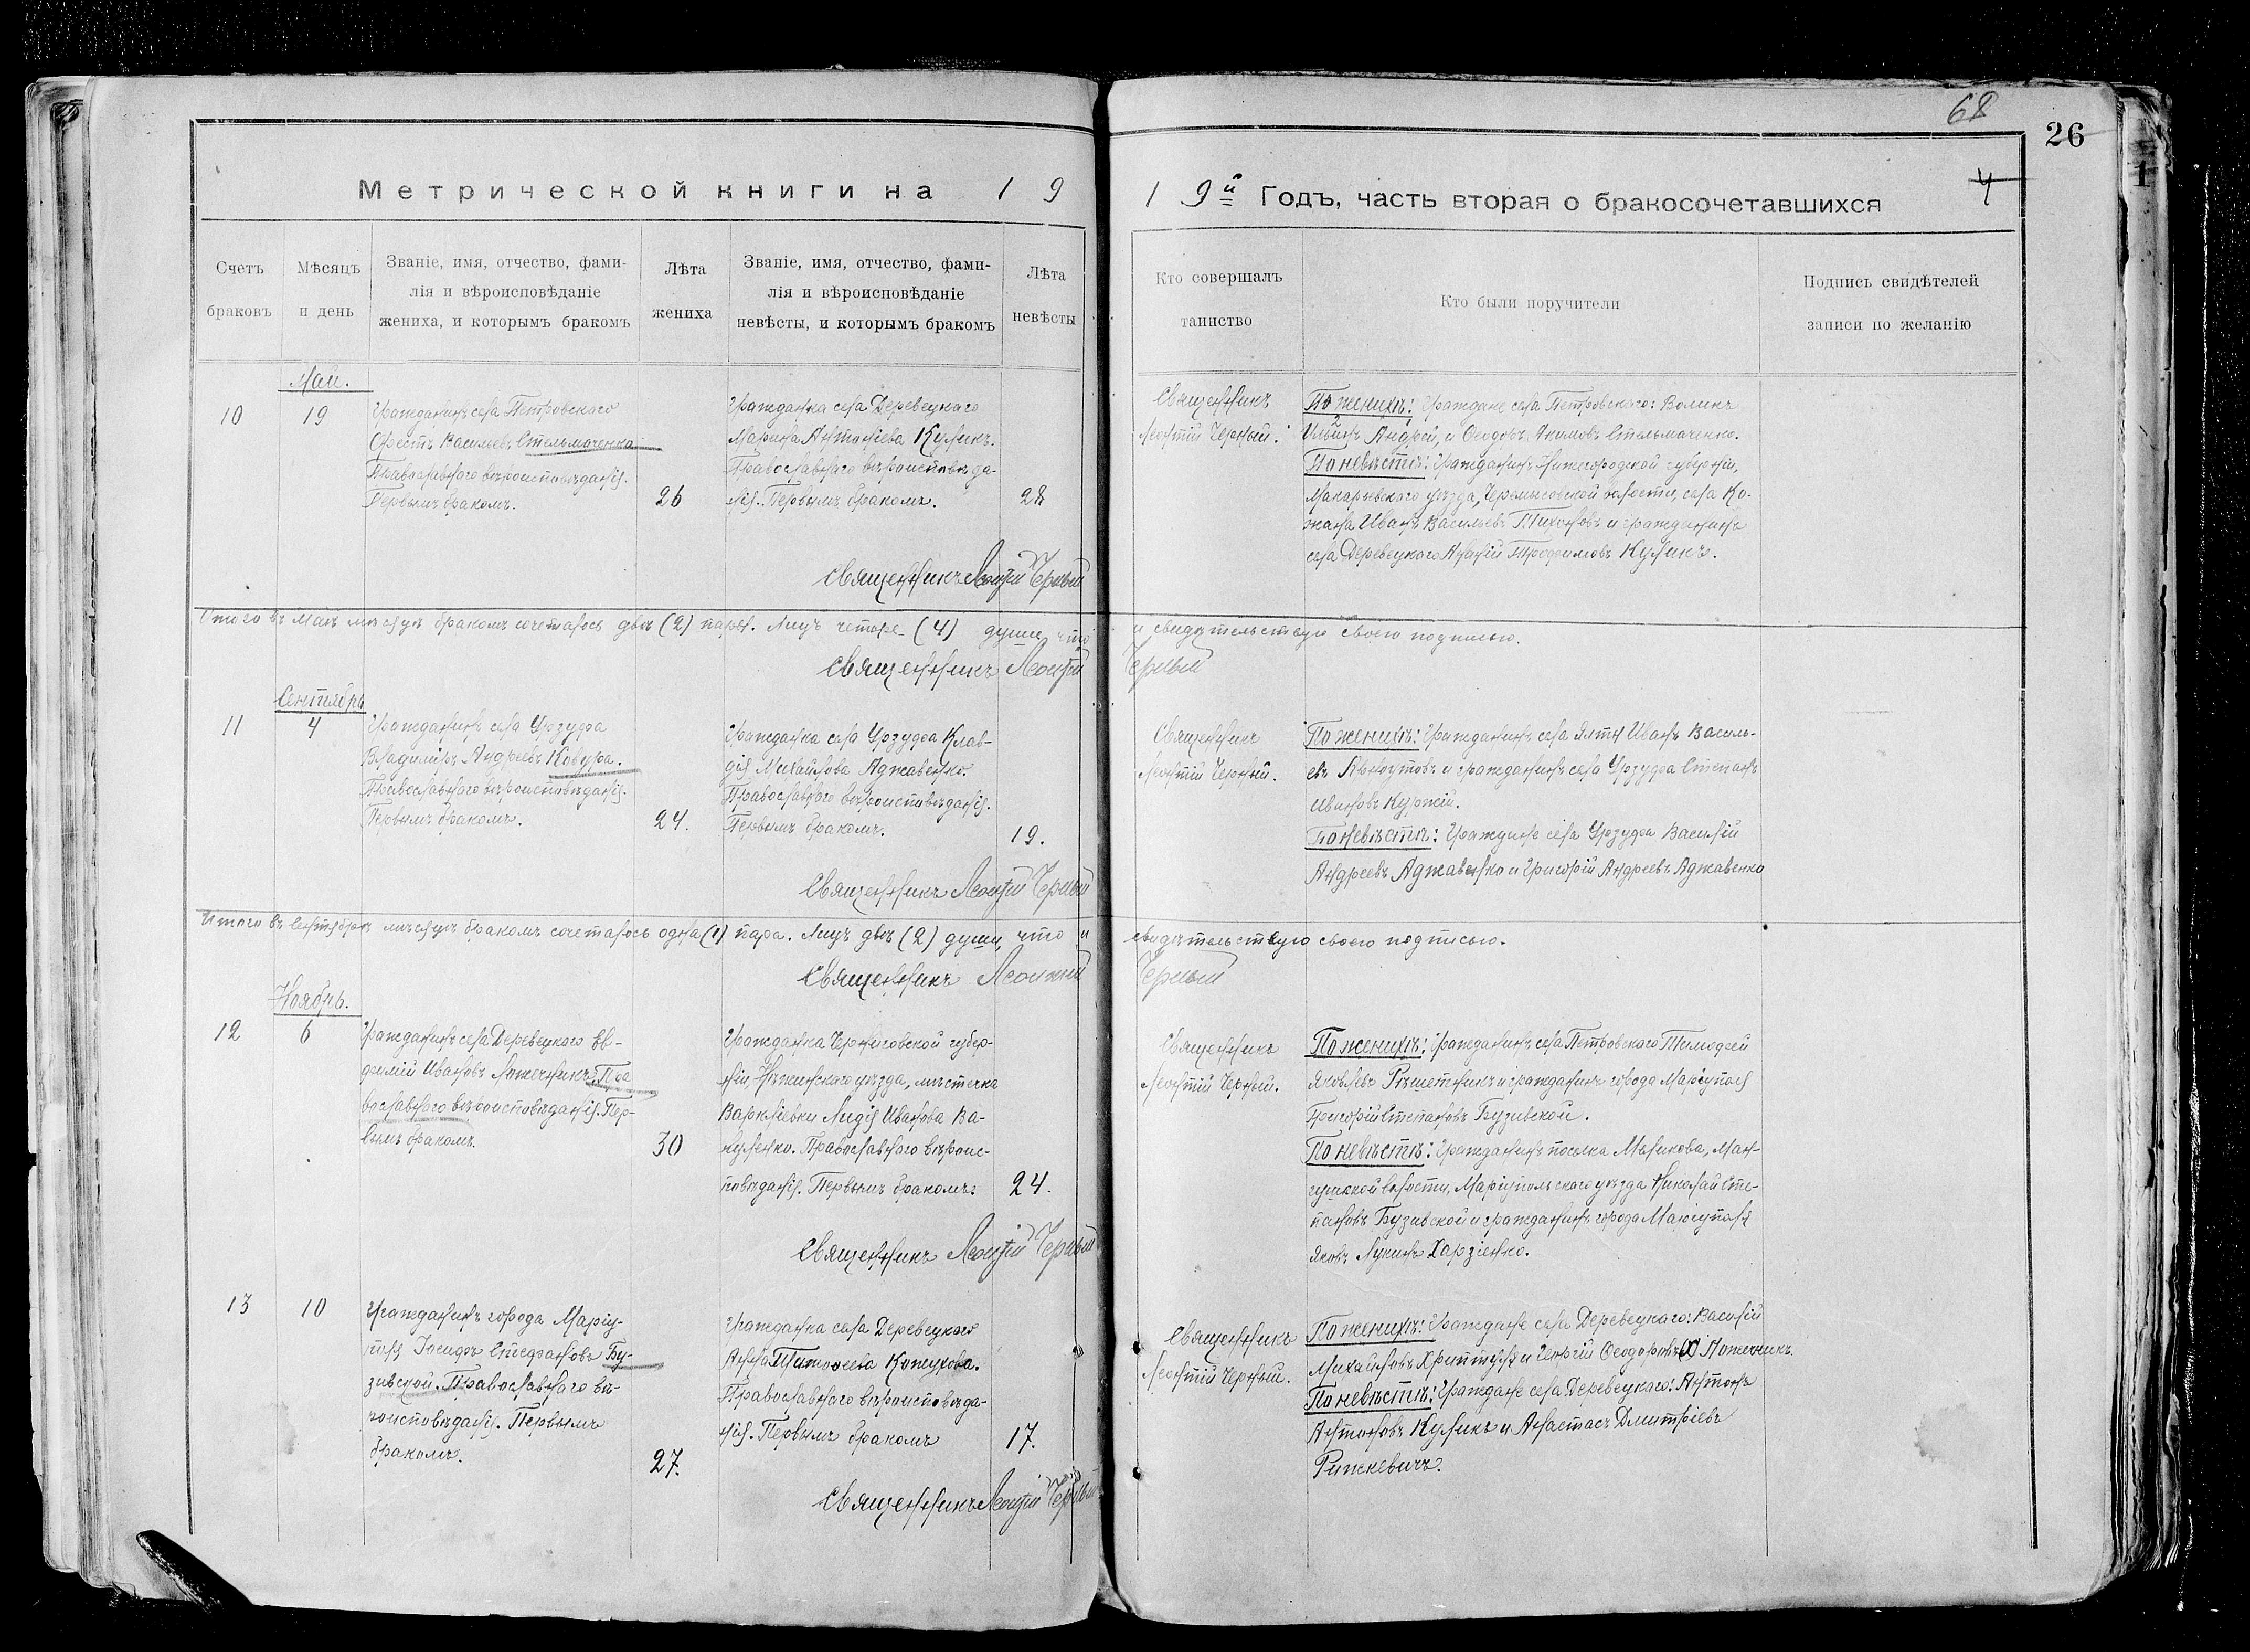 68
26
4
Метрической книги на 1 9
1 9й Годъ, часть вторая о бракосочетавшихся
Счетъ браковъ
Мѣсяцъ и день
Званіе, имя, отчество, фами-
лія и вѣроисповѣданіе
жениха, и которымъ бракомъ
Лѣта жениха
Званіе, имя, отчество, фами-
лія и вѣроисповѣданіе
невѣсты, и которымъ бракомъ
Лѣта невѣсты
Кто совершалъ таинство
Кто были поручители
Подпись свидѣтелей
записи по желанію
Май.
10
19
Гражданинъ села Петровского
Орестъ Васильевъ Стельмаченко
Православного вѣроисповѣданія.
Первымъ бракомъ.
26
Гражданка села Деревецкаго
Марина Антоніева Куликъ.
Православного вѣроисповѣда-
нія. Первымъ бракомъ.
28
Священникъ Леонтій Черный
Священникъ
Леонтій Черный.
По женихѣ: Граждане села Петровского:
Ильинъ Андрей, и Ѳеодоръ Акимовъ Стельмаченко.
По невѣстѣ: Гражданинъ Нижегородской губерніи,
Макарьевского уѣзда, волости, села Ко-
Иванъ Васильевъ Тихоновъ и гражданинъ
села Деревецкого Трофимовъ Куликъ.
Итого въ Маѣ мѣсяцѣ бракомъ сочеталось двѣ (2) пары. Лицъ четыре (4) души, что
и свидѣтельствую своею подписью.
Священникъ Леонтій Черный
Сентябрь
11
4
Гражданинъ села Урзуфа
Владиміръ Андреевъ Ковура.
Православного вѣроисповѣданія.
Первымъ бракомъ.
24.
Гражданка села Урзуфа Клав-
дія Михайлова Аджавенко.
Православного вѣроисповѣданія.
Первымъ бракомъ.
19.
Священникъ Леонтій Черный
Священникъ
Леонтій Черный.
По женихѣ: Гражданинъ села Ялты Иванъ Василь-
евъ и гражданинъ села Урзуфа Степанъ
Ивановъ Куржій.
По невѣстѣ: Граждане села Урзуфа Василій
Андреевъ Аджавенко и Григорій Андреевъ Аджавенко
Итого въ Сентябрѣ мѣсяцѣ бракомъ сочеталось одна (1) пара. Лицъ двѣ (2) души, что и
свидѣтельствую своею подписью.
Священникъ Леонтий Черный
Ноябрь.
12
6
Гражданинъ села Деревецкого Ев-
фимій Ивановъ Ложечникъ. Пра
вославного вѣроисповѣданія. Пер-
вымъ бракомъ.
30
Гражданка Черниговской губер-
ніи, Нѣжинского уѣзда, мѣстечка
Лидія Иванова Ва-
куленко. Православного вѣроис-
повѣданія. Первымъ бракомъ.
24.
Священникъ Леонтій Черный
Священникъ
Леонтій Черный.
По женихѣ: Гражданинъ села Петровского Тимофей
Яковлевъ Рѣшетникъ и гражданинъ города Маріуполя
Григорій Степановъ Бузивской.
По невѣстѣ: Гражданинъ поселка Меликова, Ман-
гушской волости, Маріупольского уѣзда Николай Сте-
пановъ Бузивской и гражданинъ города Маріуполя
Яковъ Лукинъ Харзіенко.
13
10
Гражданинъ города Маріу-
поля Іосифъ Стефановъ Бу-
зивской. Православного вѣ-
роисповѣданія. Первымъ
бракомъ.
27.
Гражданка села Деревецкого
Анна Тимоѳеева Кожухова.
Православного вѣроисповѣда-
нія. Первымъ бракомъ
17.
Священникъ Леонтій Черный
Священникъ
Леонтій Черный.
По женихѣ: Граждане села Деревецкого: Василій
Михайловъ и Георгій Ѳеодоровъ Ложечникъ.
По невѣстѣ: Граждане села Деревецкого: Антонъ
Антоновъ Куликъ и Анастасъ Дмитріевъ
Рижкевичъ.